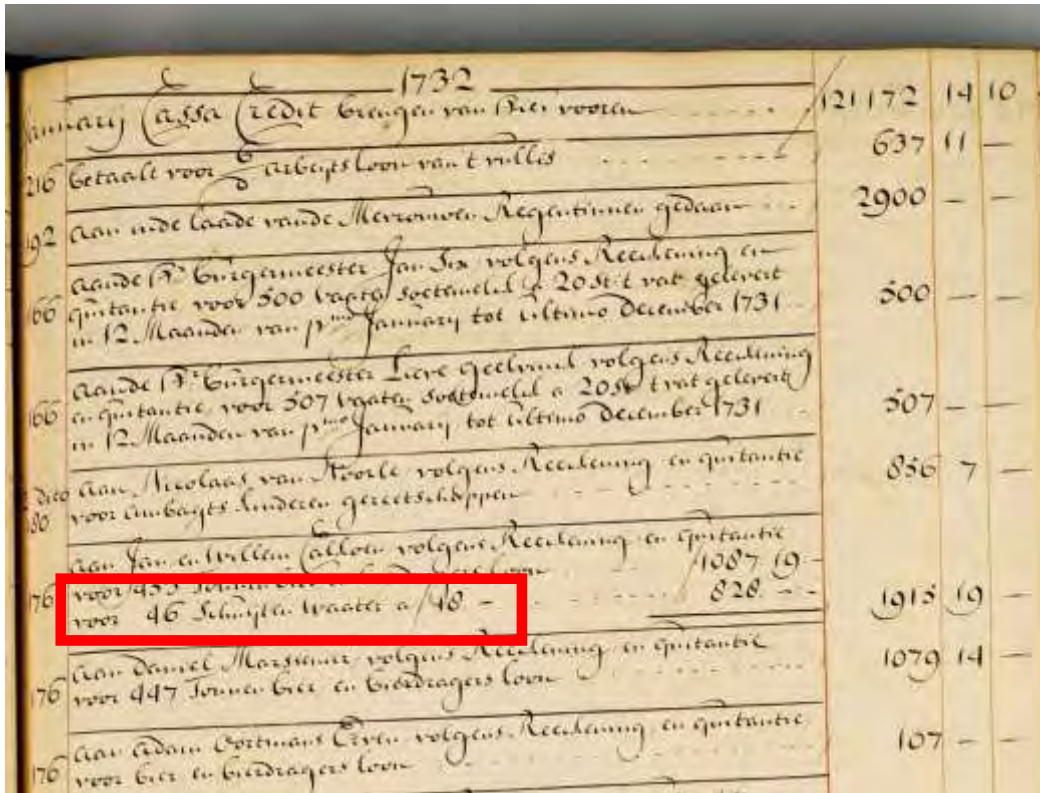 1732
January Cassa Credit brengen van hier vooren 121172 14 10
216 betaalt voor arbeytsloon van't vullis 637 11 —
192 aan inde laade vande Mevrouwen Regentinnen gedaan 2900 — —
aande Hr. Burgermeester Jan Six volgens Reeckening en
166 quitantie voor 500 vaaten soetemelck a 20 st t vat gelevert 500 — —
in 12 Maanden van pmo January tot ultimo December 1731
aande Hr. Burgermeester Lieve Geelvinck volgens Reeckening
166 en quitantie, voor 507 vaaten soetemelck a 20 st t vat gelevert 507 — —
in 12 Maanden van pmo January tot ultimo December 1731
dito aan Nicolaas van Noorle volgens Reeckening en quitantie 856 7 —
80 voor ambagts kinderen gereetschappen
aan Jan en Willem volgens Reeckening en quitantie
176 voor 453 Tonnen bier en loon 1087 19 -
voor 46 Schuijten Waater a 18 - 828 - - 1915 19 —
aan Daniel volgens Reeckening en quitantie 1079 14 —
176 voor 447 Tonnen bier en bierdragers loon
aan Adam Oortmans Erven volgens Reeckening en quitantie 107 — —
176 voor bier en bierdragers loon